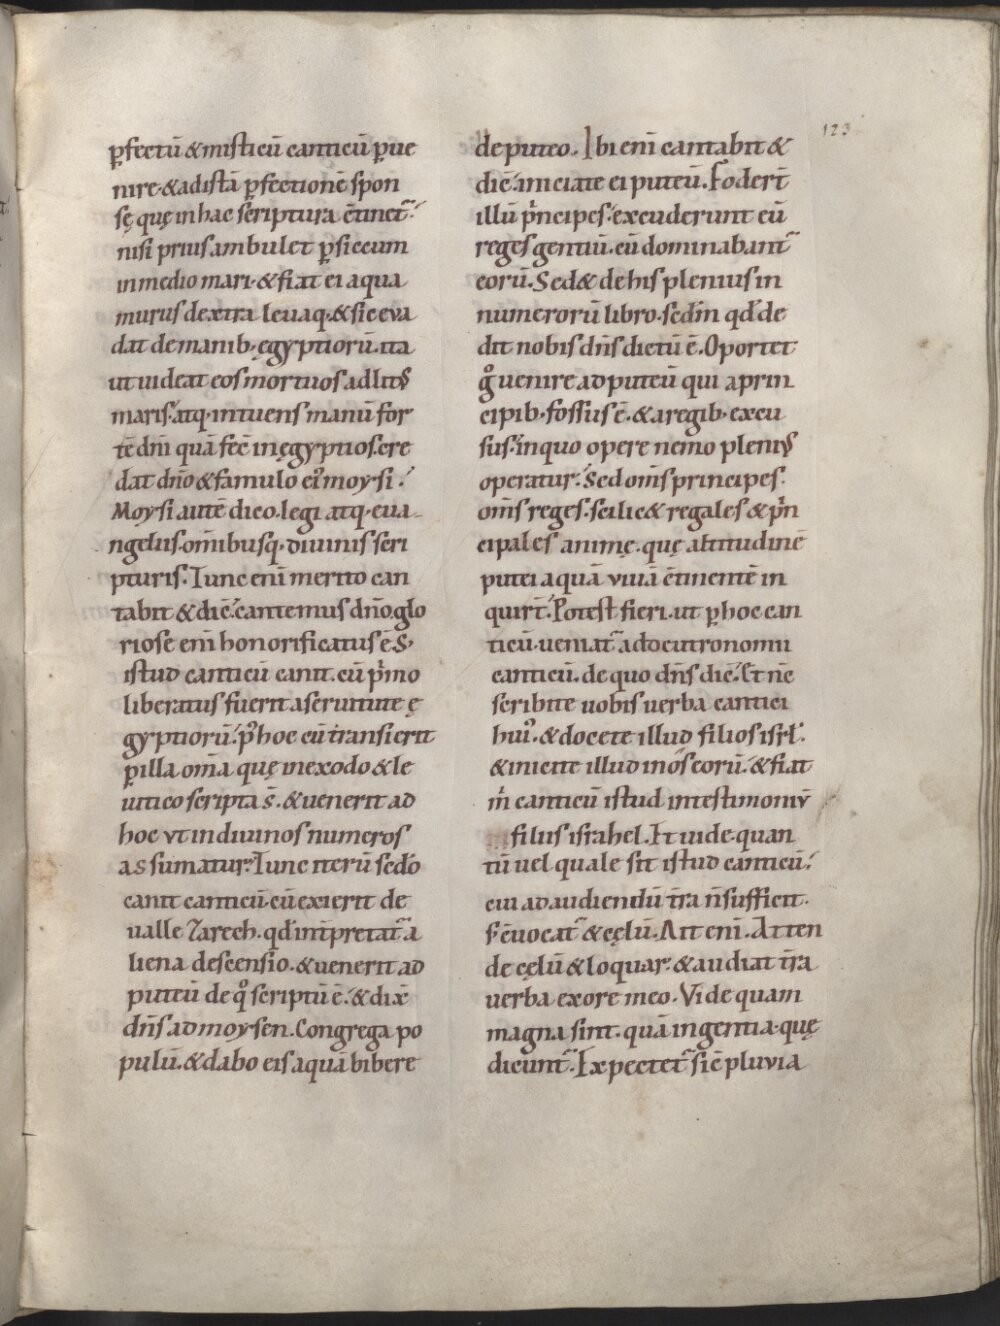 123
ꝑfectū & misticū canticū ꝑue
nire· & ad istā ꝑfectionē spon
sę quę in hac scriptura ↄtinet᷑·
nisi prius ambulet ꝑ siccum
in medio mari· & fiat ei aqua
murus dextra leuaq·& sic eva
dat de manib· ęgyptiorū· ita
ut uideat eos mortuos ad lit᷒
maris· atq· intuens manū for
tē dn̄i quā fec̄ in ęgyptios· cre
dat dn̄o & famulo ei᷒ moysi·
Moysi autē dico· legi atq· eua
ngeliis· om̄ibusq· diuinis scri
pturis· Tunc eni᷒ merito can
tabit & dic̄· cantemus dn̄o· glo
riose eni᷒ honorificatus ē S·
istud canticū canit· cū p͛mo
liberatus fuerit a seruitute ę
gyptiorū· p᷒ hoc cū transierit
ꝑ illa om̄a quę in exodo & le
uitico scripta s̄· & uenerit ad
hoc vt in diuinos numeros
assumatur· Tunc iterū sedo
canit canticū· cū exierit de
ualle Zarech· qd̄ int̄pretat᷑ a
liena descensio· & uenerit ad
puteū de qͦ scriptū ē· & dix̄
dn̄s ad moysen· Congrega po
pulū· & dabo eis aquā bibere
de puteo· Ibi eni᷒ cantabit &
dic̄· iniciate ei puteū· Foder̄t
illū p͛ncipes· excuderunt eū
reges gentiū· cū dominabant᷑
eorū· Sed & de his plenius in
numerorū libro· sedm̄ qd̄ de
dit nobis dn̄s dictū ē· Oportet
gͦ uenire ad puteū qui a prin
cipib· fossus ē· & a regib· excu
sus· in quo opere nemo pleni᷒
operatur· Sed om̄s principes·
om̄s reges· scilic& regales & p͛n
cipales animę· quę altitudinē
putei aquā vivā ↄtinentē in
quirt̄· Potest fieri· ut ꝑ hoc can
ticū· ueniat᷑ ad deutronomii
canticū· de quo dn̄s dic̄· Et nc̄
scribite uobis uerba cantici
hui᷒· & docete illud filios isrl̄·
& inicite illud in os eorū· & fiat
m͛ canticū istud in testimoniv̄
filiis israhel· Et uide· quan
tū uel quale sit istud canticū·
cui ad audiendū t̄ra n̄ sufficit·
s· ↄuocat᷑ & cęlū· Ait eni᷒· Atten
de cęlū & loquar· & audiat t̄ra
uerba ex ore meo· Vide quam
magna sint· quā ingentia· quę
dicunt᷑· Expectet᷑ sic̄ pluvia